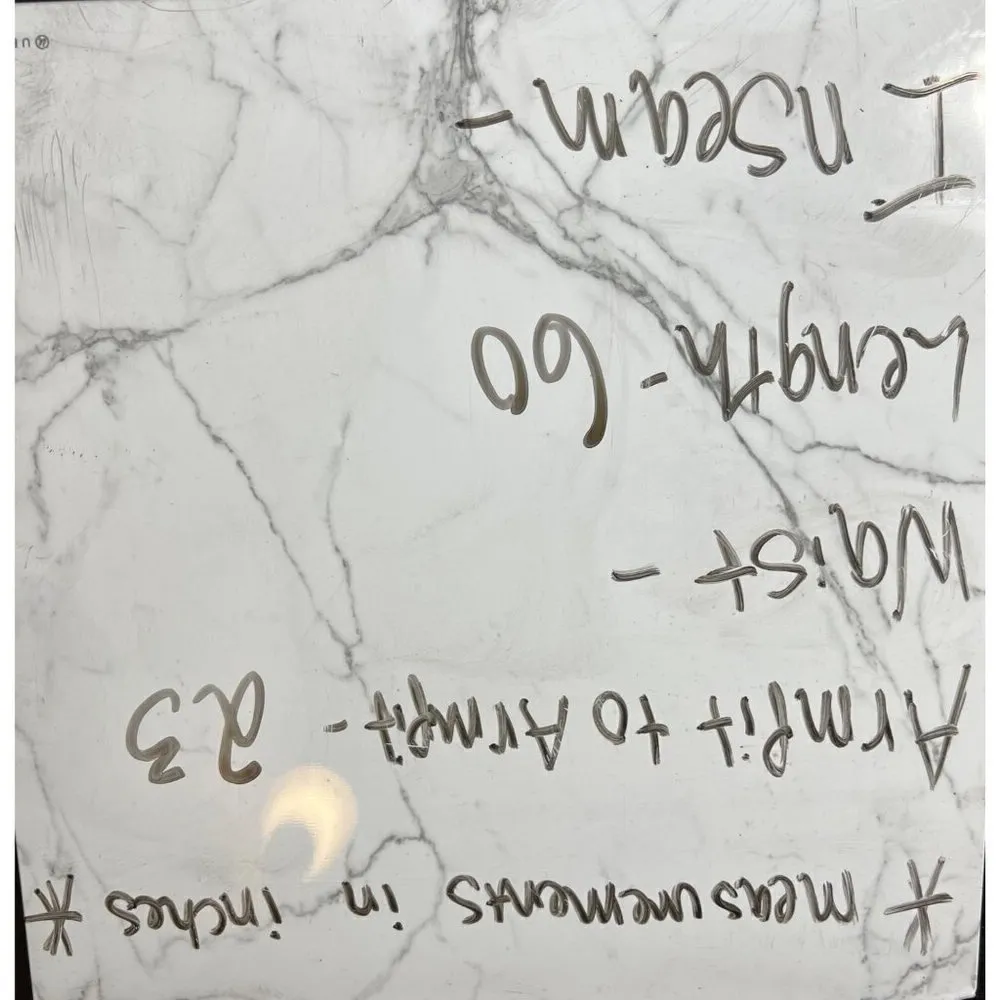 * measurements in inches *
Armpit to Armpit - 23
Waist -
Length - 60
Inseam -